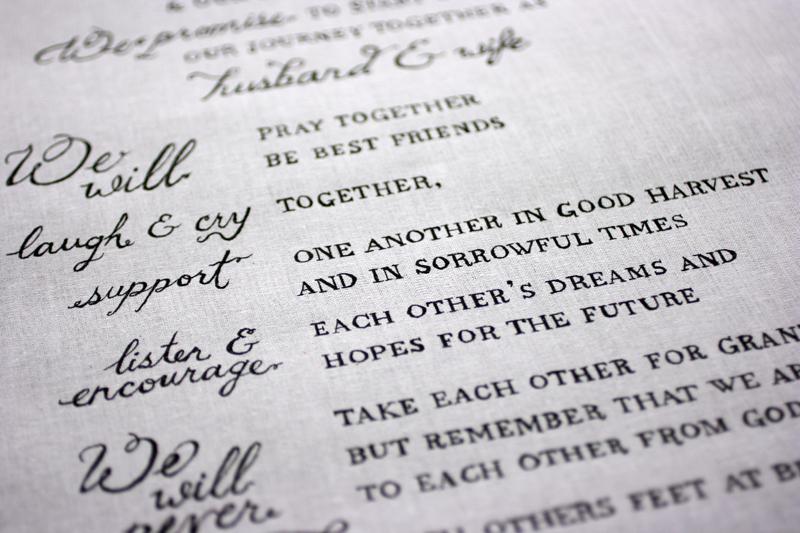 We promise TO START
OUR JOURNEY TOGETHER AS
husband & wife
We will PRAY TOGETHER
BE BEST FRIENDS
laugh & cry TOGETHER,
support ONE ANOTHER IN GOOD HARVEST
AND IN SORROWFUL TIMES
listen & encourage EACH OTHER'S DREAMS AND
HOPES FOR THE FUTURE
We will never TAKE EACH OTHER FOR
BUT REMEMBER THAT WE
TO EACH OTHER FROM GOD
OTHERS FEET AT